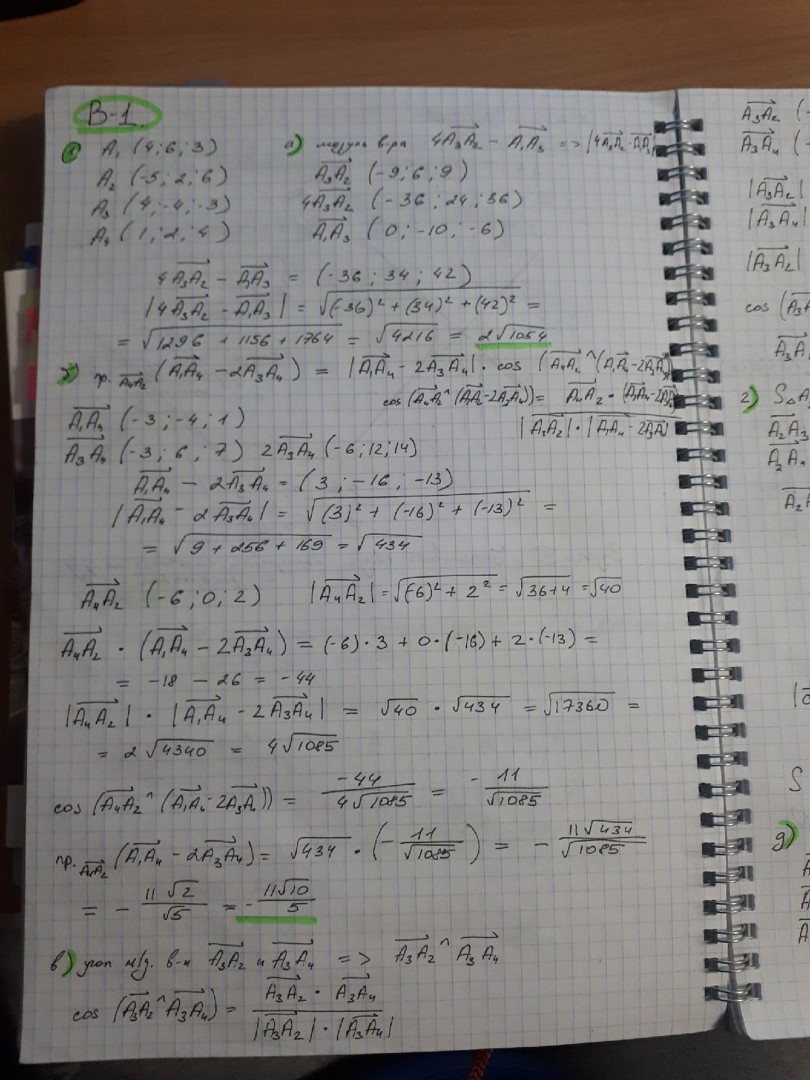 В-1.
1) A₁ (4; 6; 3)
A₂ (-5; 2; 6)
A₃ (4; -4; -3)
A₄ (1; 2; 4)
а) модуль в-ра 4A₃A₂ - A₁A₃ => |4A₃A₂ - A₁A₃|
A₃A₂ (-9; 6; 9)
4A₃A₂ (-36; 24; 36)
A₁A₃ (0; -10; -6)
4A₃A₂ - A₁A₃ = (-36; 34; 42)
|4A₃A₂ - A₁A₃| = √((-36)² + (34)² + (42)²) =
= √(1296 + 1156 + 1764) = √4216 = 2√1054
б) пр. A₄A₂ (A₁A₄ - 2A₃A₄) = |A₁A₄ - 2A₃A₄| · cos (A₄A₂ ^ (A₁A₄ - 2A₃A₄))
cos (A₄A₂ ^ (A₁A₄ - 2A₃A₄)) = A₄A₂ · (A₁A₄ - 2A₃A₄)
|A₄A₂| · |A₁A₄ - 2A₃A₄|
A₁A₄ (-3; -4; 1)
A₃A₄ (-3; 6; 7) 2A₃A₄ (-6; 12; 14)
A₁A₄ - 2A₃A₄ = (3; -16; -13)
|A₁A₄ - 2A₃A₄| = √((3)² + (-16)² + (-13)²) =
= √(9 + 256 + 169) = √434
A₄A₂ (-6; 0; 2) |A₄A₂| = √((-6)² + 2²) = √(36+4) = √40
A₄A₂ · (A₁A₄ - 2A₃A₄) = (-6) · 3 + 0 · (-16) + 2 · (-13) =
= -18 - 26 = -44
|A₄A₂| · |A₁A₄ - 2A₃A₄| = √40 · √434 = √17360 =
= 2√4340 = 4√1085
cos (A₄A₂ ^ (A₁A₄ - 2A₃A₄)) = -44 / 4√1085 = - 11 / √1085
пр. A₄A₂ (A₁A₄ - 2A₃A₄) = √434 · (- 11 / √1085) = - 11√434 / √1085
= - 11√2 / √5 = - 11√10 / 5
в) угол м/д. в-и A₃A₂ и A₃A₄ => A₃A₂ ^ A₃A₄
cos (A₃A₂ ^ A₃A₄) = A₃A₂ · A₃A₄ / |A₃A₂| · |A₃A₄|
A₃A₂ (-
A₃A₄ (-
|A₃A₂|
|A₃A₄|
|A₃A₂|
cos (A₃A
A₃A
г) S△A
A₂A₃
A₂A₄
A₂A
S
д)